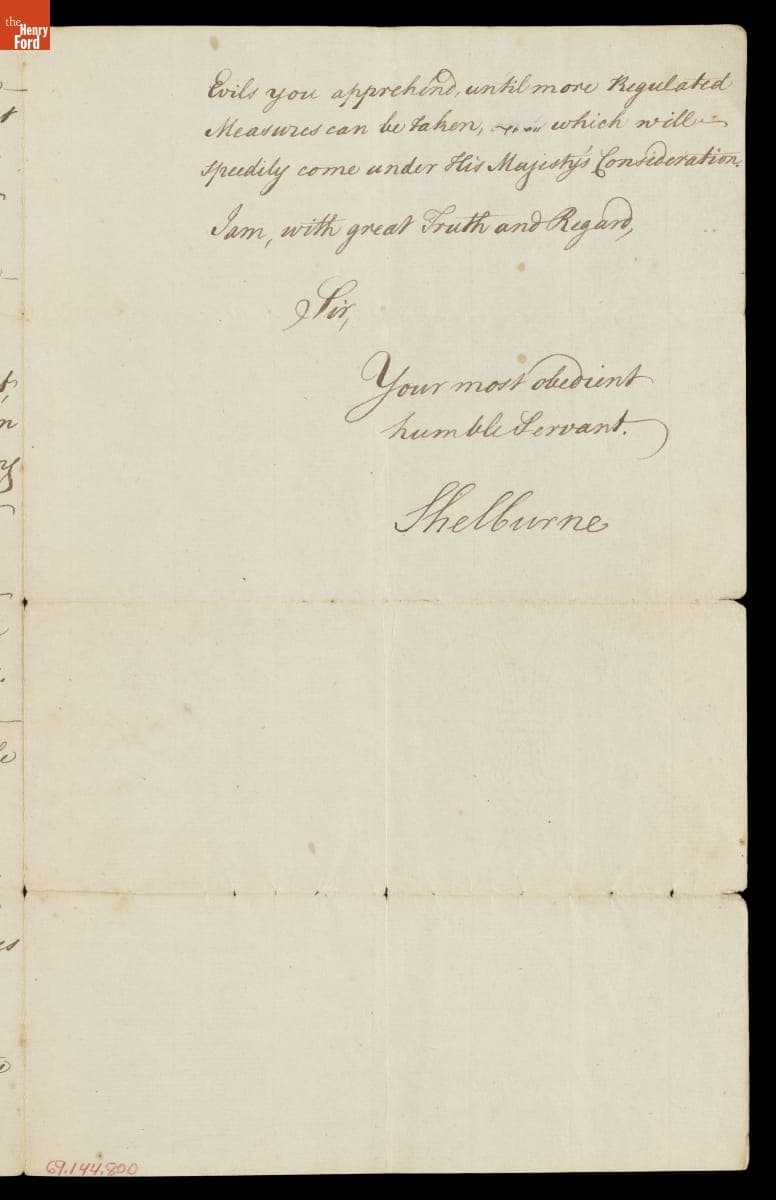 the
Henry
Ford
Evils you apprehend, until more Regulated
Measures can be taken, which will
speedily come under His Majesty's Consideration.
I am, with great Truth and Regard,
Sir,
Your most obedient
humble Servant.
Shelburne
69.144.800